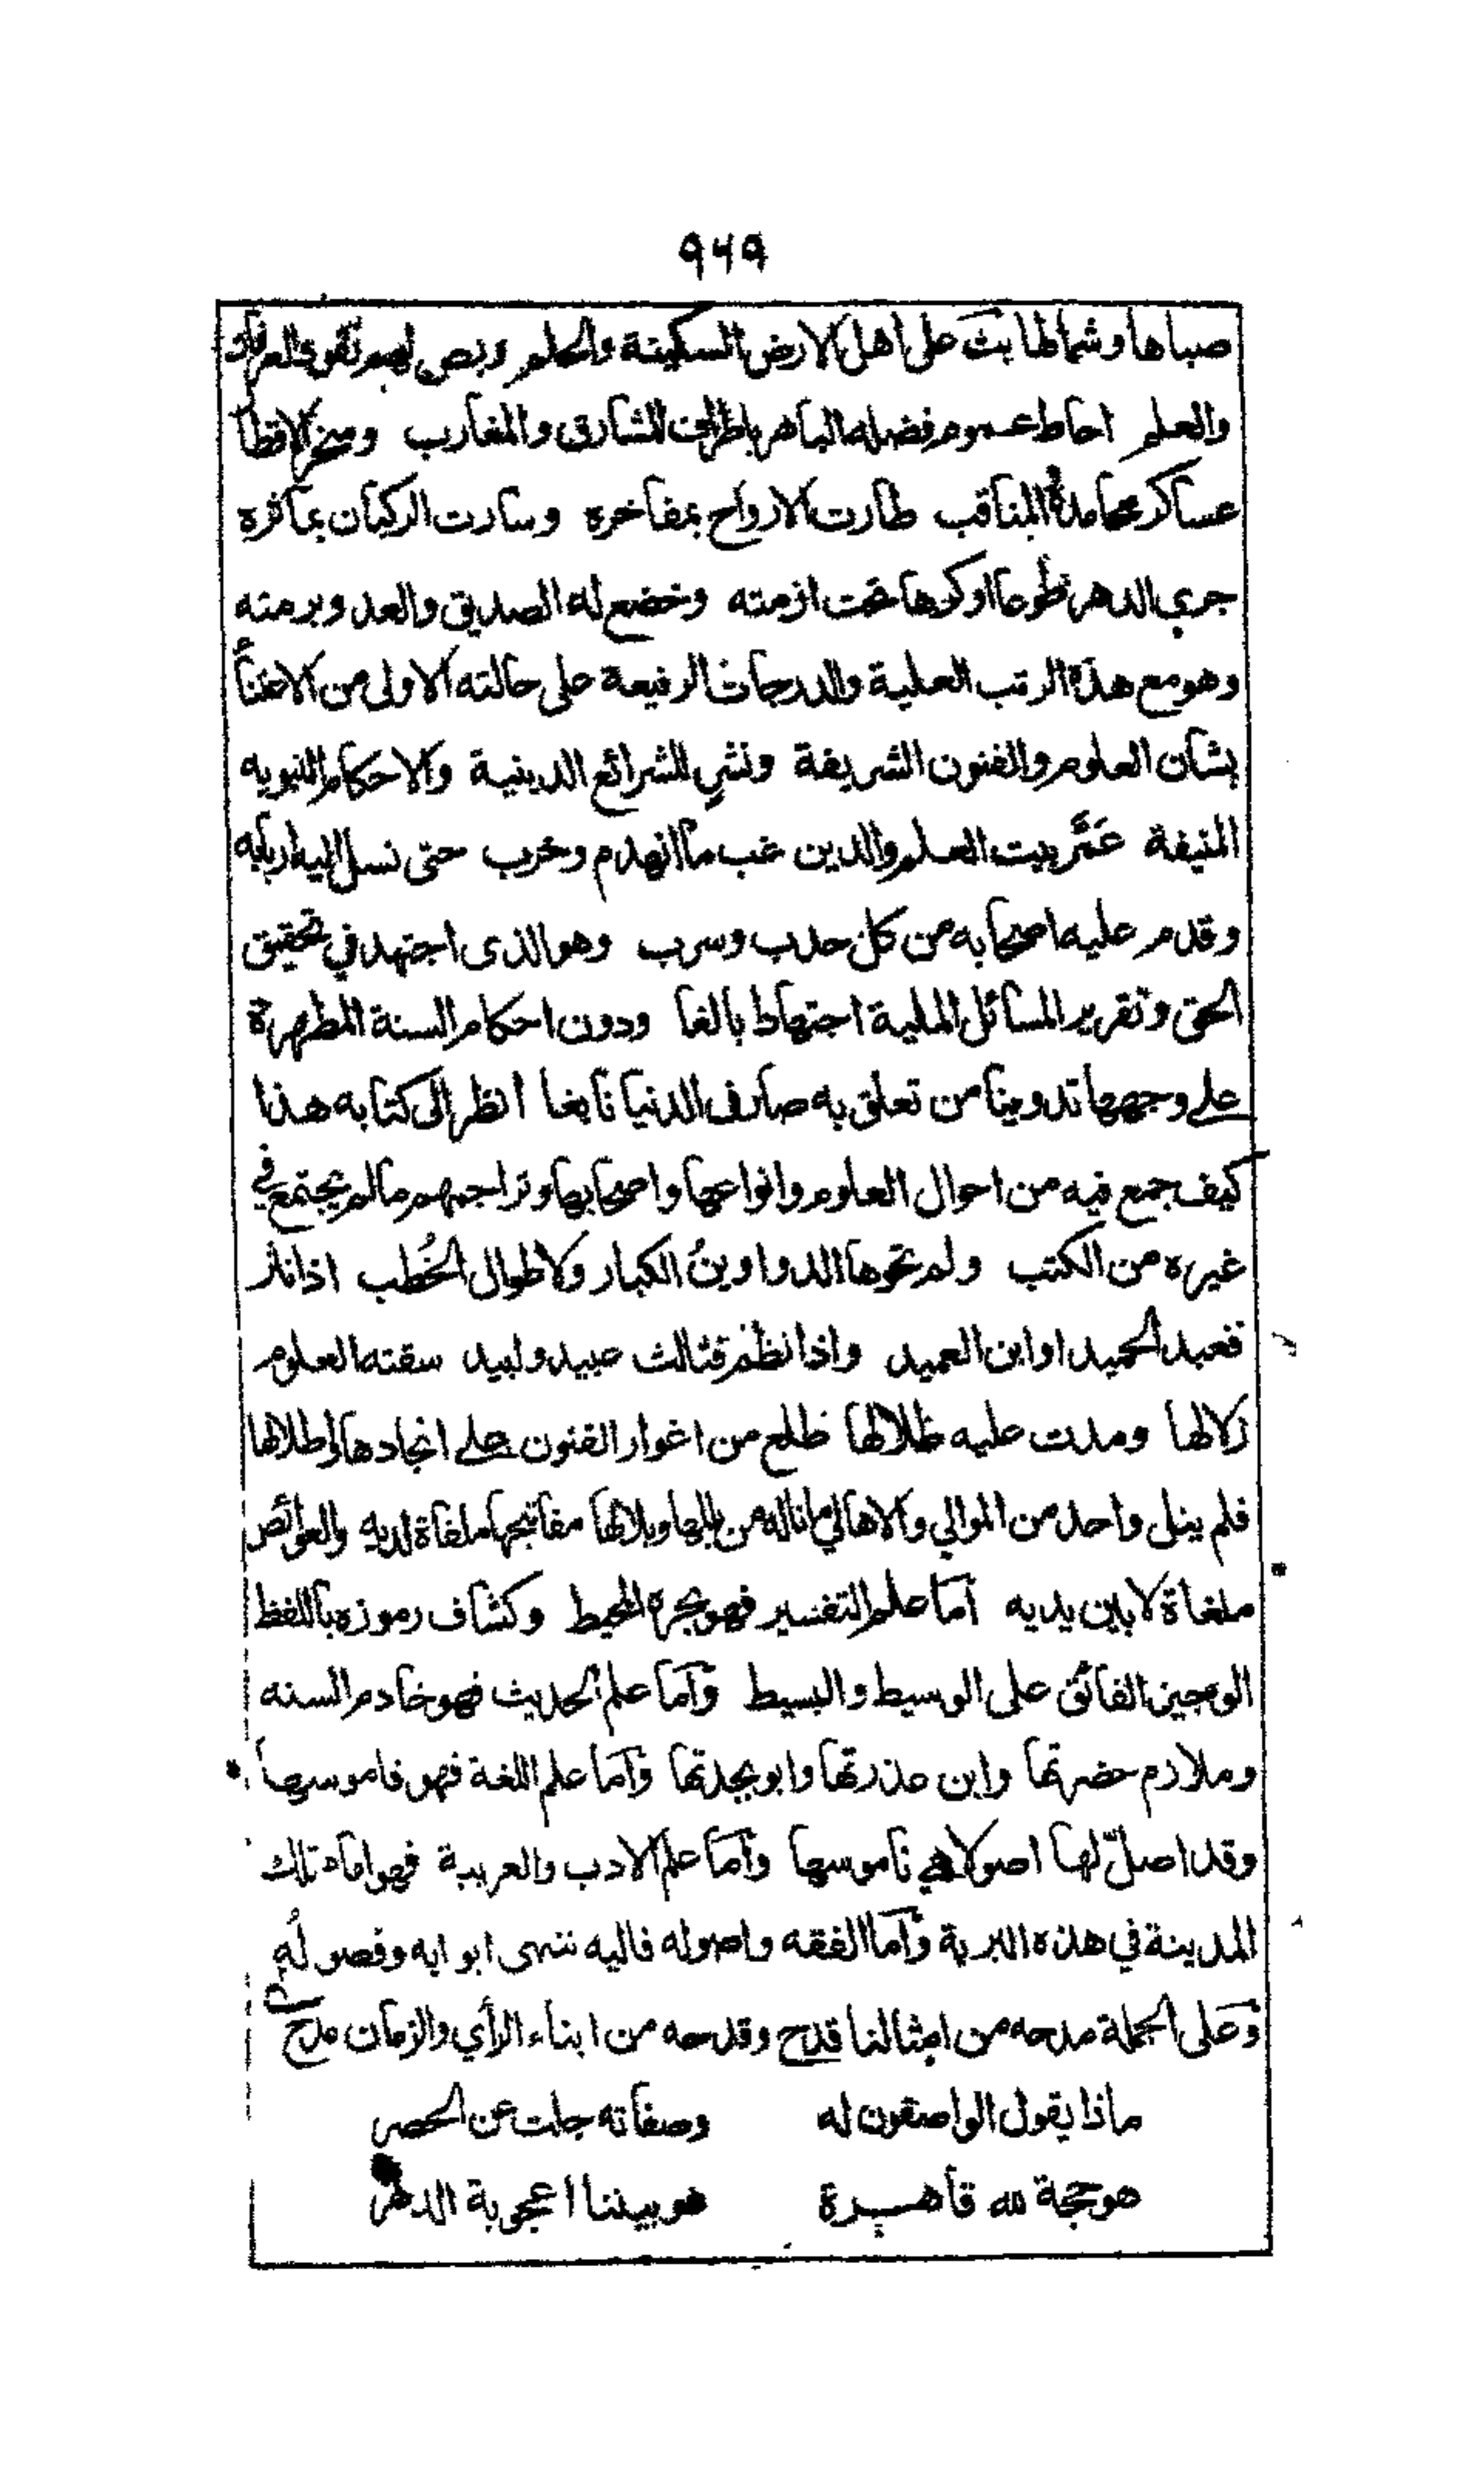 ٩٦٩
صباها وشمالها بث على اهل الارض السكينة والحلم وبص لهم تقوى
والعلم احاط عموم فضله الباهر باطراف المشارق والمغارب وسخر الاقطا
عساكر محامده المناقب طارت الارواح بمفاخره وسارت الركبان بمآثره
جرى الدهر طوعا او كرها تحت ازمته وخضع له الصديق والعدو برمته
وهو مع هذه الرتب العلية والدرجات الرفيعة على حالته الاولى من الاعتنأ
بشان العلوم والفنون الشريفة ونشر الشرائع الدينية والاحكام النبويه
المنيفة عمَّر بيت العلم والدين غب ما انهدم وخرب حتى نسل اليه اربابه
وقدم عليه اصحابه من كل حدب وسرب وهو الذى اجتهد في تحقيق
الحق وتقرير المسائل الملية اجتهادا بالغا ودون احكام السنة المطهرة
على وجهها تدوينا من تعلق به صار في الدنيا نابغا انظر الى كتابه هذا
كيف جمع فيه من احوال العلوم وانواعها واصحابها وتراجمهم ما لم يجتمع في
غيره من الكتب ولم تحوها الدواوينُ الكبار ولا طوال الخُطب اذا نثر
فعبد الحميد او ابن العميد واذا نظم فثالث عبيد ولبيد سقته العلوم
زلالها ومدت عليه ظلالها طلع من اغوار الفنون على انجادها واطلالها
فلم ينل واحد من الموالي والاهالي ما ناله من بللها وبلالها مفاتيحها ملقاة لديه والعوائص
ملغاة لا بين يديه اما علم التفسير فهو بحره المحيط وكشاف رموزه باللفظ
الوجيز الفائق على الوسيط والبسيط وآما علم الحديث فهو خادم السنه
وملازم حضرتها وابن عذرتها وابو بجدتها وآما علم اللغة فهو قاموسها
وقد اصلّ لها اصولا هي ناموسها وآما علم الادب والعربية فهو امام تلك
المدينة في هذه البرية وآما الفقه واصوله فاليه تنتهى ابوابه وفصولُه
وعلى الجملة مدحه من امثالنا قدح وقدحه من ابناء الرأي والزمان مدح
ماذا يقول الواصفون له وصفاته جلت عن الحصر
هو حجة لله قاهرة هو بيننا اعجوبة الدهر